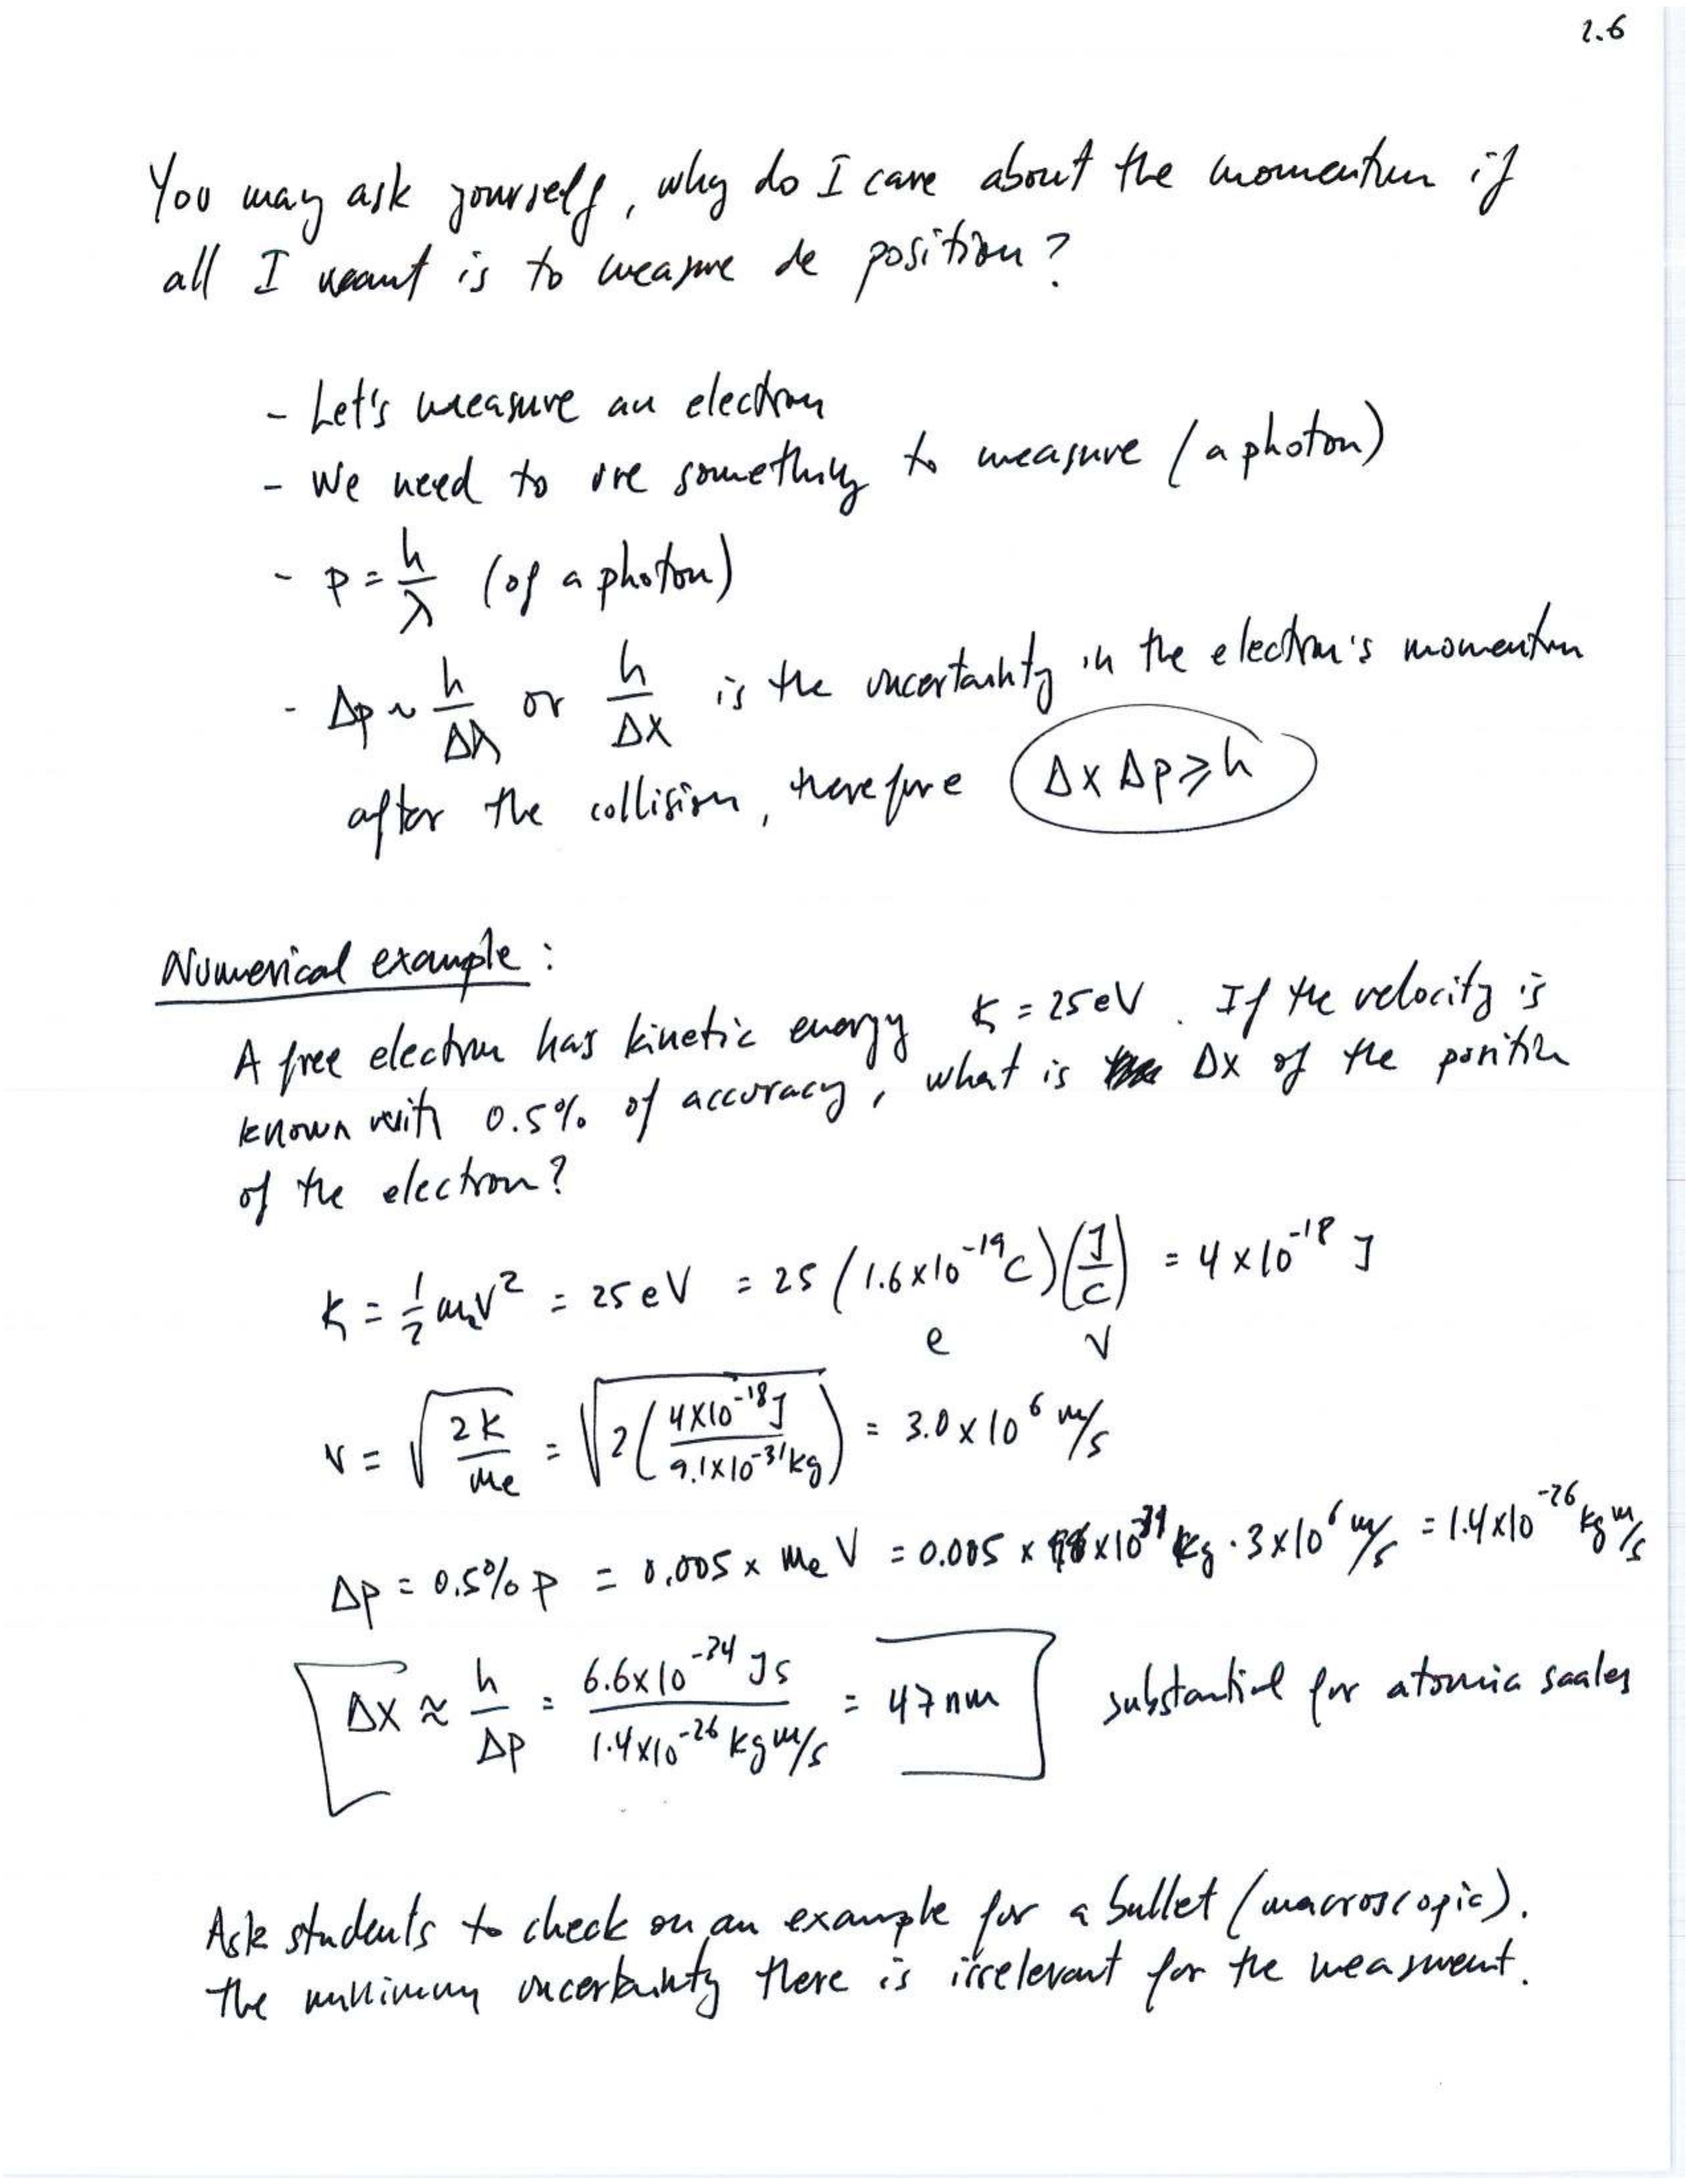 2.6
You may ask yourself, why do I care about the momentum if
all I want is to measure de position?
- Let's measure an electron
- We need to use something to measure (a photon)
- p = h/λ (of a photon)
- Δp ~ h/Δλ or h/Δx is the uncertainty in the electron's momentum
after the collision, therefore Δx Δp ≥ h
Numerical example:
A free electron has kinetic energy K = 25 eV. If the velocity is
known with 0.5% of accuracy, what is Δx of the position
of the electron?
K = 1/2 mₑv² = 25 eV = 25 (1.6×10⁻¹⁹C)(J/C) = 4×10⁻¹⁸ J
e V
v = √(2K/me) = √(2(4×10⁻¹⁸J/9.1×10⁻³¹kg)) = 3.0×10⁶ m/s
Δp = 0.5% p = 0.005 × me V = 0.005 × ×10⁻³¹ kg · 3×10⁶ m/s = 1.4×10⁻²⁶ kg m/s
Δx ≈ h/Δp = 6.6×10⁻³⁴ Js / 1.4×10⁻²⁶ kg m/s = 47 nm substantial for atomic scales
Ask students to check on an example for a bullet (macroscopic).
The minimum uncertainty there is irrelevant for the measment.